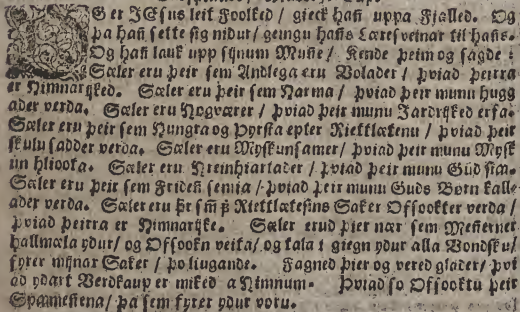 G er JEsus leit Foolked / gieck hañ uppa Fjalled. Og
þa hañ sette sig nidur / geingu hañs Læresveinar til hañs.
Og hañ lauk upp sijnum Muñe / Kende þeim og sagde :
Sæler eru þeir sem Andlega eru Volader / þviad þeirra
er Himnarijked. Sæler eru þeir sem Harma / þviad þeir munu hugg
ader verda. Sæler eru Hogværer / þviad þeir munu Jardrijked erfa.
Sæler eru þeir sem Hungra og Þyrsta epter Riettlætenu / þviad þeir
skulu sadder verda. Sæler eru Myskunsamer / þviad þeir munu Mysk
un hlioota. Sæler eru Hreinhiartader / þviad þeir munu Gud sia.
Sæler eru þeir sem Friden semia / þviad þeir munu Guds Børn kall-
ader verda. Sæler eru þr sm̄ þ Riettlætesins Saker Offsookter verda /
þviad þeirra er Himnarijke. Sæler erud þier nær sem Meñerner
hallmæla ydur / og Offsookn veita / og tala i giegn ydur alla Vondsku /
fyrer mijnar Saker / þo liugande. Fagned þier og vered glader / þvi
ad ydart Verdkaup er miked a Himnum. Þviad so Offsooktu þeir
Spameñena / þa sem fyrer ydur voru.